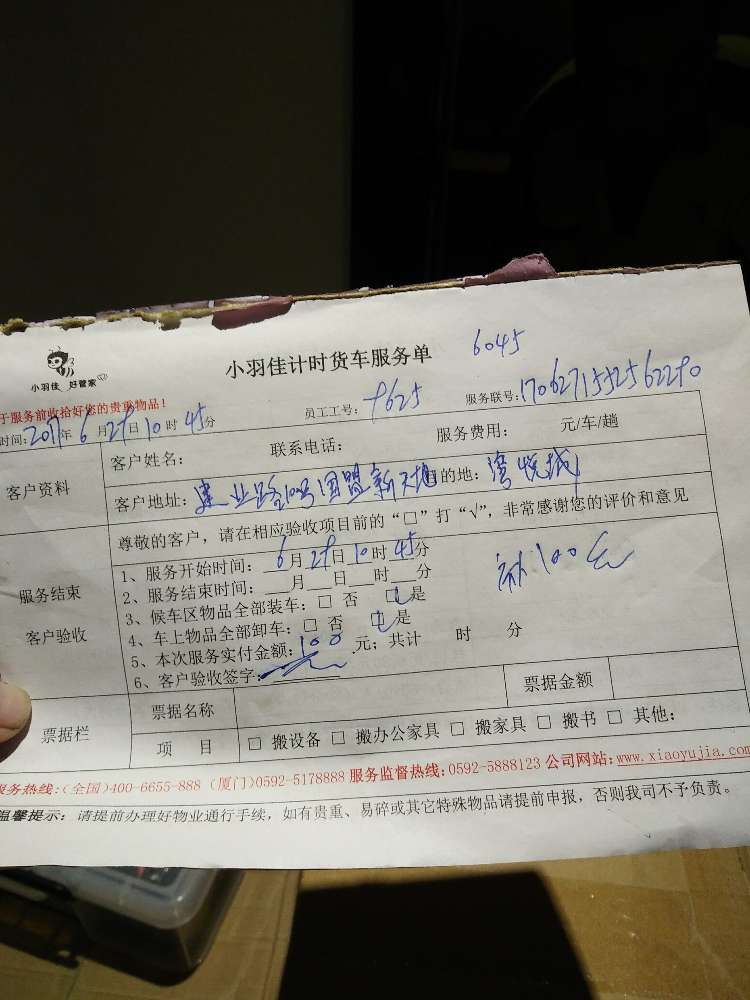 小羽佳 好管家
小羽佳计时货车服务单 6045
于服务前收拾好您的贵重物品!
时间:2017年6月29日10时45分 员工工号: 9625 服务联号:
客户资料
客户姓名: 联系电话: 服务费用: 元/车/趟
客户地址:建业路 国盟新天地 目的地:湾悦城
尊敬的客户,请在相应验收项目前的“□”打“√”,非常感谢您的评价和意见
服务结束
客户验收
1、服务开始时间:6月29日10时45分
2、服务结束时间:___月___日___时___分
3、候车区物品全部装车:□ 否 □是
4、车上物品全部卸车:□ 否 □是
5、本次服务实付金额:100元;共计 时 分
6、客户验收签字:
补100元
票据栏
票据名称 票据金额
项 目 □ 搬设备 □ 搬办公家具 □ 搬家具 □ 搬书 □ 其他:
服务热线:(全国)400-6655-888 (厦门)0592-5178888 服务监督热线:0592-5888123 公司网站:www.xiaoyujia.com
温馨提示: 请提前办理好物业通行手续,如有贵重、易碎或其它特殊物品请提前申报,否则我司不予负责。